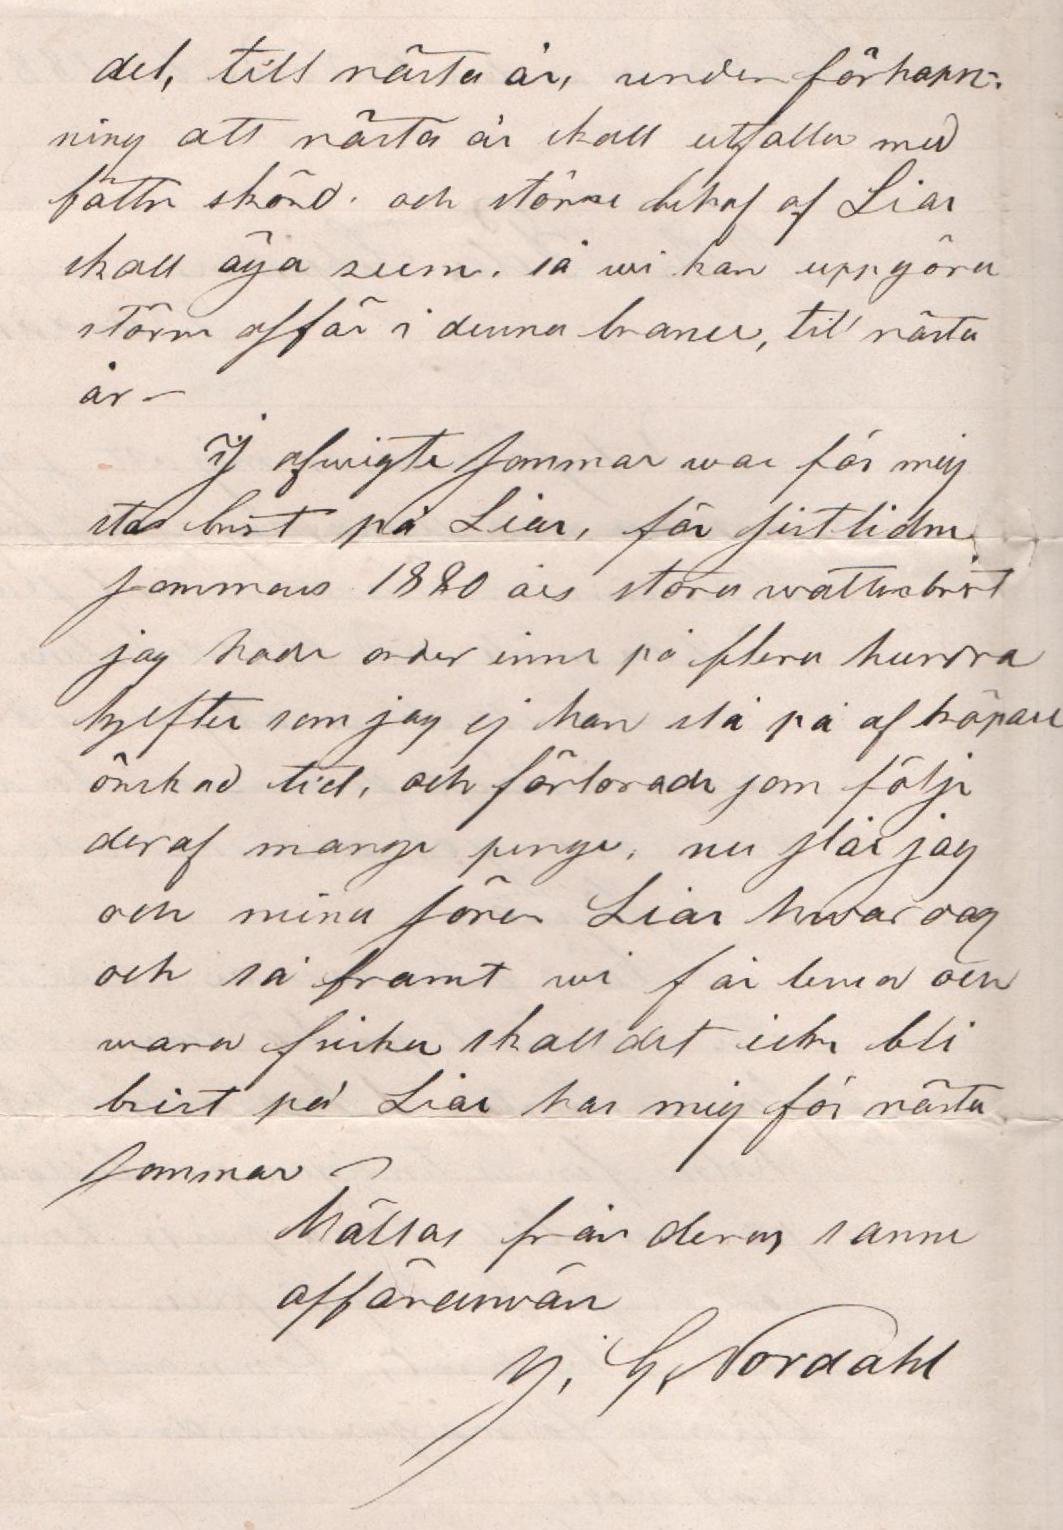 det, till nästa år, under förhopp-
ning att nästa år skall utfalla med
bättre skörd. och större behof af Liar
skall äga rum. så wi kan uppgöra
större affär i denna brance, till nästa
år —
I afwigte sommar war för mig
stor brist på Liar, för sistlidne
sommars 1880 års stora wattenbrist
jag hade order inne på flera hundra
tylfter som jag ej kan slå på af köpare
önskad tid, och förlorade som följe
deraf mange penge, nu slår jag
och mina söner Liar hwar dag
och så framt wi får lewa och
wara friska skall det icke bli
brist på Liar hos mig för nästa
sommar —
Hälsas från deras sanne
affärswän
J. G. Nordahl